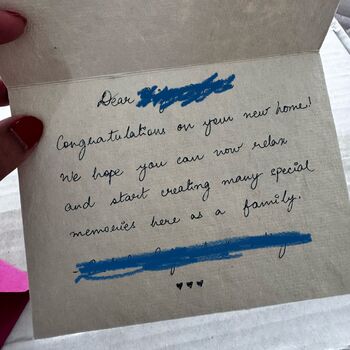 Dear
Congratulations on your new home!
We hope you can now relax
and start creating many special
memories here as a family.
♥♥♥